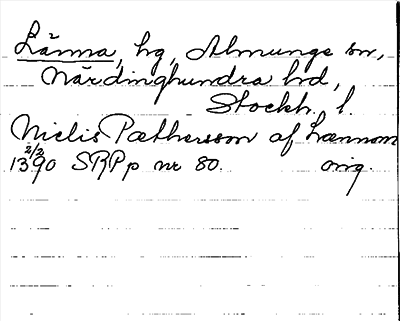 Länna, hg, Almunge sn,
Närdinghundra hd,
Stockh. l.
Niclis Pæthersson af Lænnom
2/2 1390 SRPp nr 80. orig.